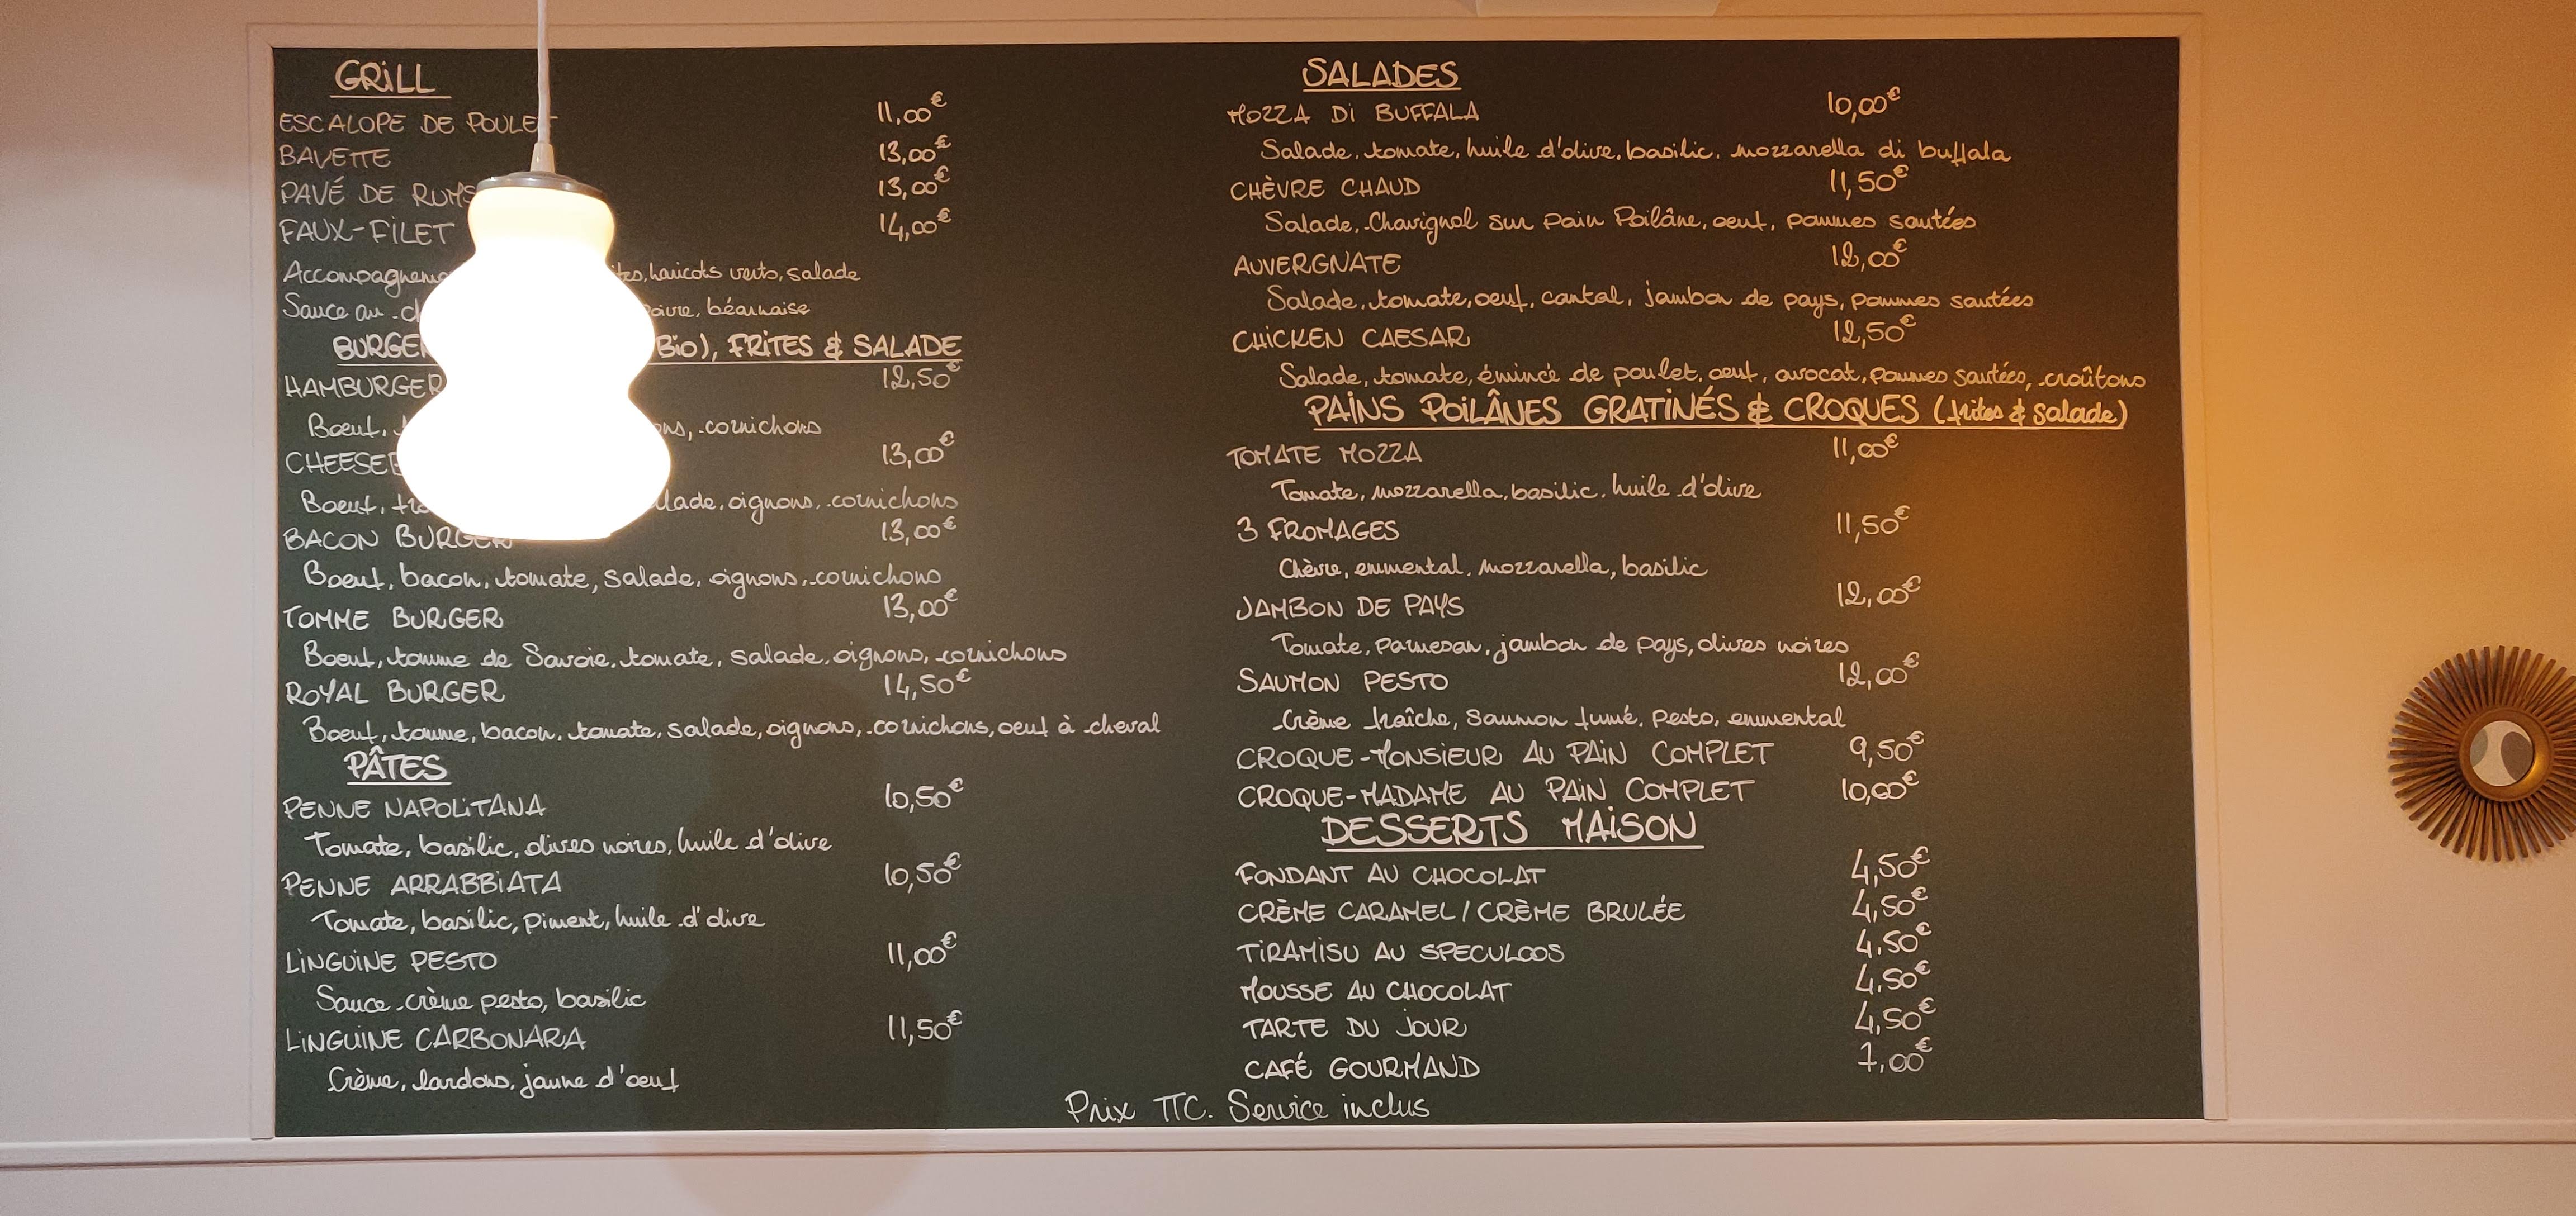 GRILL
ESCALOPE DE POULET 11,00€
BAVETTE 13,00€
PAVÉ DE 13,00€
FAUX-FILET 14,00€
haricots verts, salade
Sauce au béarnaise
Bio), FRITES & SALADE
HAMBURGER 12,50€
Boeuf, cornichons
13,00€
Boeuf, oignons, cornichons
BACON BURGER 13,00€
Boeuf, bacon, tomate, salade, oignons, cornichons
TOMME BURGER 13,00€
Boeuf, tomme de Savoie, tomate, salade, oignons, cornichons
ROYAL BURGER 14,50€
Boeuf, tomme, bacon, tomate, salade, oignons, cornichons, oeuf à cheval
PÂTES
PENNE NAPOLITANA 10,50€
Tomate, basilic, olives noires, huile d'olive
PENNE ARRABBIATA 10,50€
Tomate, basilic, piment, huile d'olive
LINGUINE PESTO 11,00€
Sauce crème pesto, basilic
LINGUINE CARBONARA 11,50€
Crème, lardons, jaune d'oeuf
SALADES
MOZZA DI BUFFALA 10,00€
Salade, tomate, huile d'olive, basilic, mozzarella di buffala
CHÈVRE CHAUD 11,50€
Salade, Chavignol sur pain Poilâne, oeuf, pommes sautées
AUVERGNATE 12,00€
Salade, tomate, oeuf, cantal, jambon de pays, pommes sautées
CHICKEN CAESAR 12,50€
Salade, tomate, émincé de poulet, oeuf, avocat, pommes sautées, croûtons
PAINS POILÂNES GRATINÉS & CROQUES (frites & salade)
TOMATE MOZZA 11,00€
Tomate, mozzarella, basilic, huile d'olive
3 FROMAGES 11,50€
Chèvre, emmental, mozzarella, basilic
JAMBON DE PAYS 12,00€
Tomate, parmesan, jambon de pays, olives noires
SAUMON PESTO 12,00€
Crème fraîche, saumon fumé, pesto, emmental
CROQUE-MONSIEUR AU PAIN COMPLET 9,50€
CROQUE-MADAME AU PAIN COMPLET 10,00€
DESSERTS MAISON
FONDANT AU CHOCOLAT 4,50€
CRÈME CARAMEL / CRÈME BRULÉE 4,50€
TIRAMISU AU SPECULOOS 4,50€
MOUSSE AU CHOCOLAT 4,50€
TARTE DU JOUR 4,50€
CAFÉ GOURMAND 7,00€
Prix TTC. Service inclus